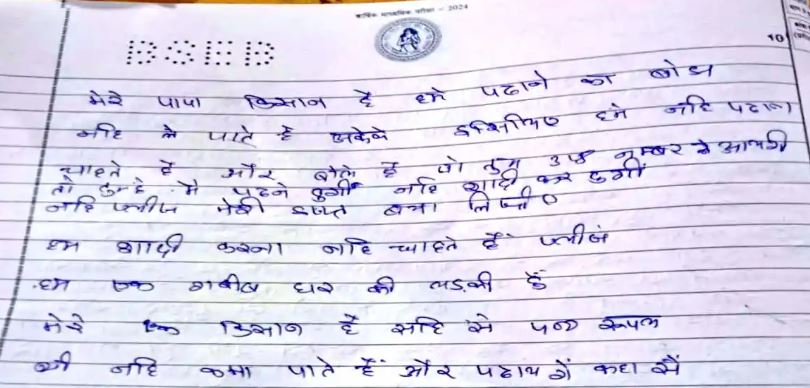 वार्षिक माध्यमिक परीक्षा - 2024
BSEB
10
मेरे पापा किसान है हमे पढाने का बोझ
नहि ले पाते है अकेले इसिलिए हमे नहि पढाना
चाहते है और बोले है जो तुम उस नम्बर से आयगी
तो तुम्हे मै पढने दुगाँ नहि शादी कर दुगाँ
नहि प्लीज मेरी इज्जत बचा लिजीए
हम शादी करना नहि चाहते हैं प्लीजं
हम एक गरीब घर की लडकी हैं
मेरे किसान हैं सहि से पन्द्र रूपय
भी नहि कमा पाते हैं और पढाय गें कहा सें